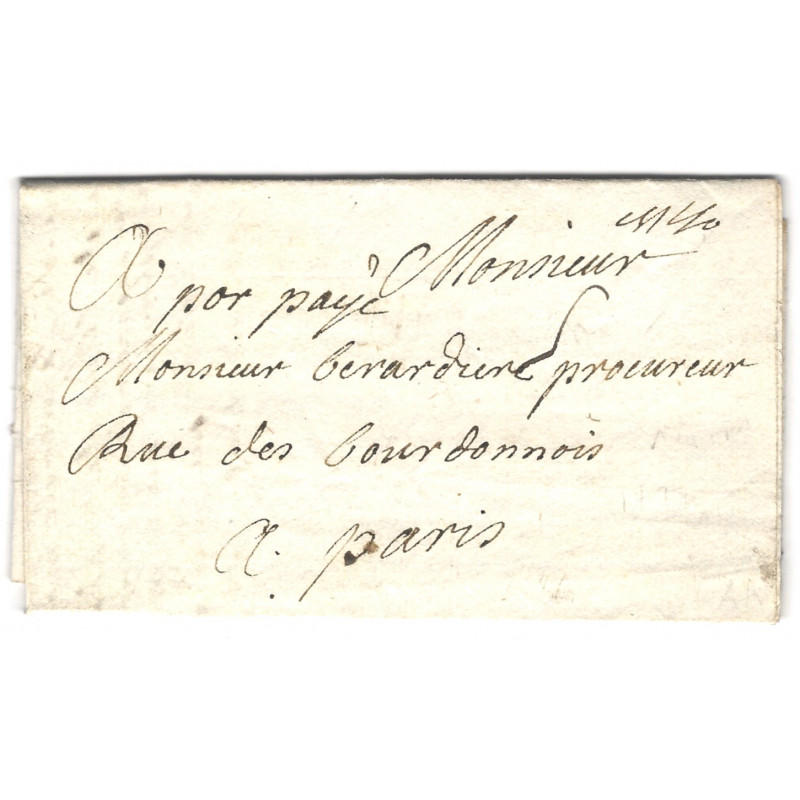 A Monsieur
por payé
Monsieur berardiere procureur
Rue des bourdonnois
a. paris